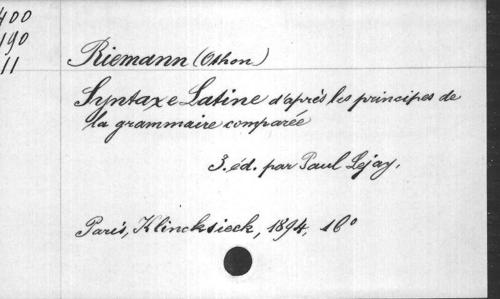 400
190
11
Riemann (Othon)
Syntaxe Latine d'après les principes de
la grammaire comparée
3. éd. par Paul Lejay.
Paris, Klincksieck, 1894, 16°